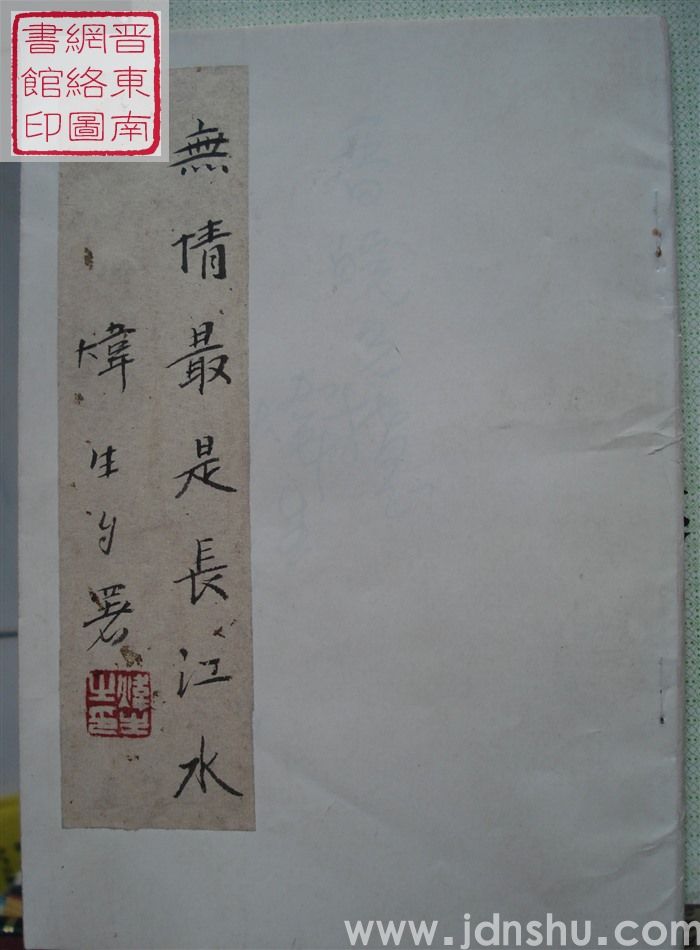 晋東南
網絡圖
書館印
無情最是長江水
煒生自署
煒生之印
www.jdnshu.com